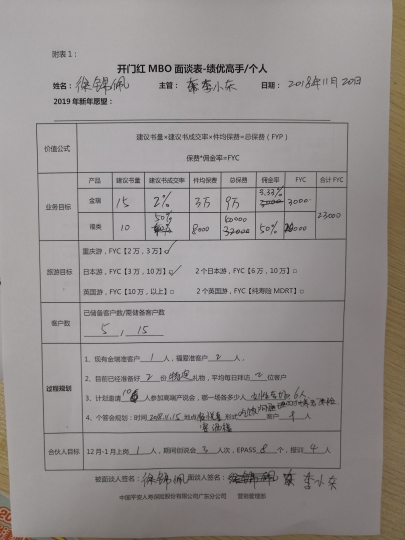 附表1：
开门红MBO面谈表-绩优高手/个人
姓名：徐锦佩 主管：李小东 日期：2018年11月20日
2019年新年愿望：
价值公式 建议书量×建议书成交率×件均保费=总保费（FYP）
保费*佣金率=FYC
业务目标 产品 建议书量 建议书成交率 件均保费 总保费 佣金率 FYC 合计FYC
金瑞 15 2% 3万 9万 3.33% 3000 23000
福类 10 50% 8000 40000 50% 20000
旅游目标 重庆游，FYC【2万，3万】☑
日本游，FYC【3万，10万】☑ 2个日本游，FYC【6万，10万】□
英国游，FYC【10万，以上】□ 2个英国游，FYC【纯寿险MDRT】□
客户数 已储备客户数/需储备客户数
5，15
过程规划 1、现有金瑞准客户 1 人，福聚准客户 2 人，
2、目前已经准备好 2 份 礼物，平均每日拜访 2 位客户
3、计划邀请 10 人参加高端产说会，哪一场各多少人， 6人
4、个答会规划：时间2018.11.15 地点 形式 客户 人
合伙人目标 12月-1月上岗 1 人，期间创说会 3 人次，EPASS 8 个，提证 4 人
被面谈人签名：徐锦佩 面谈人签名： 李小东
中国平安人寿保险股份有限公司广东分公司 营销管理部